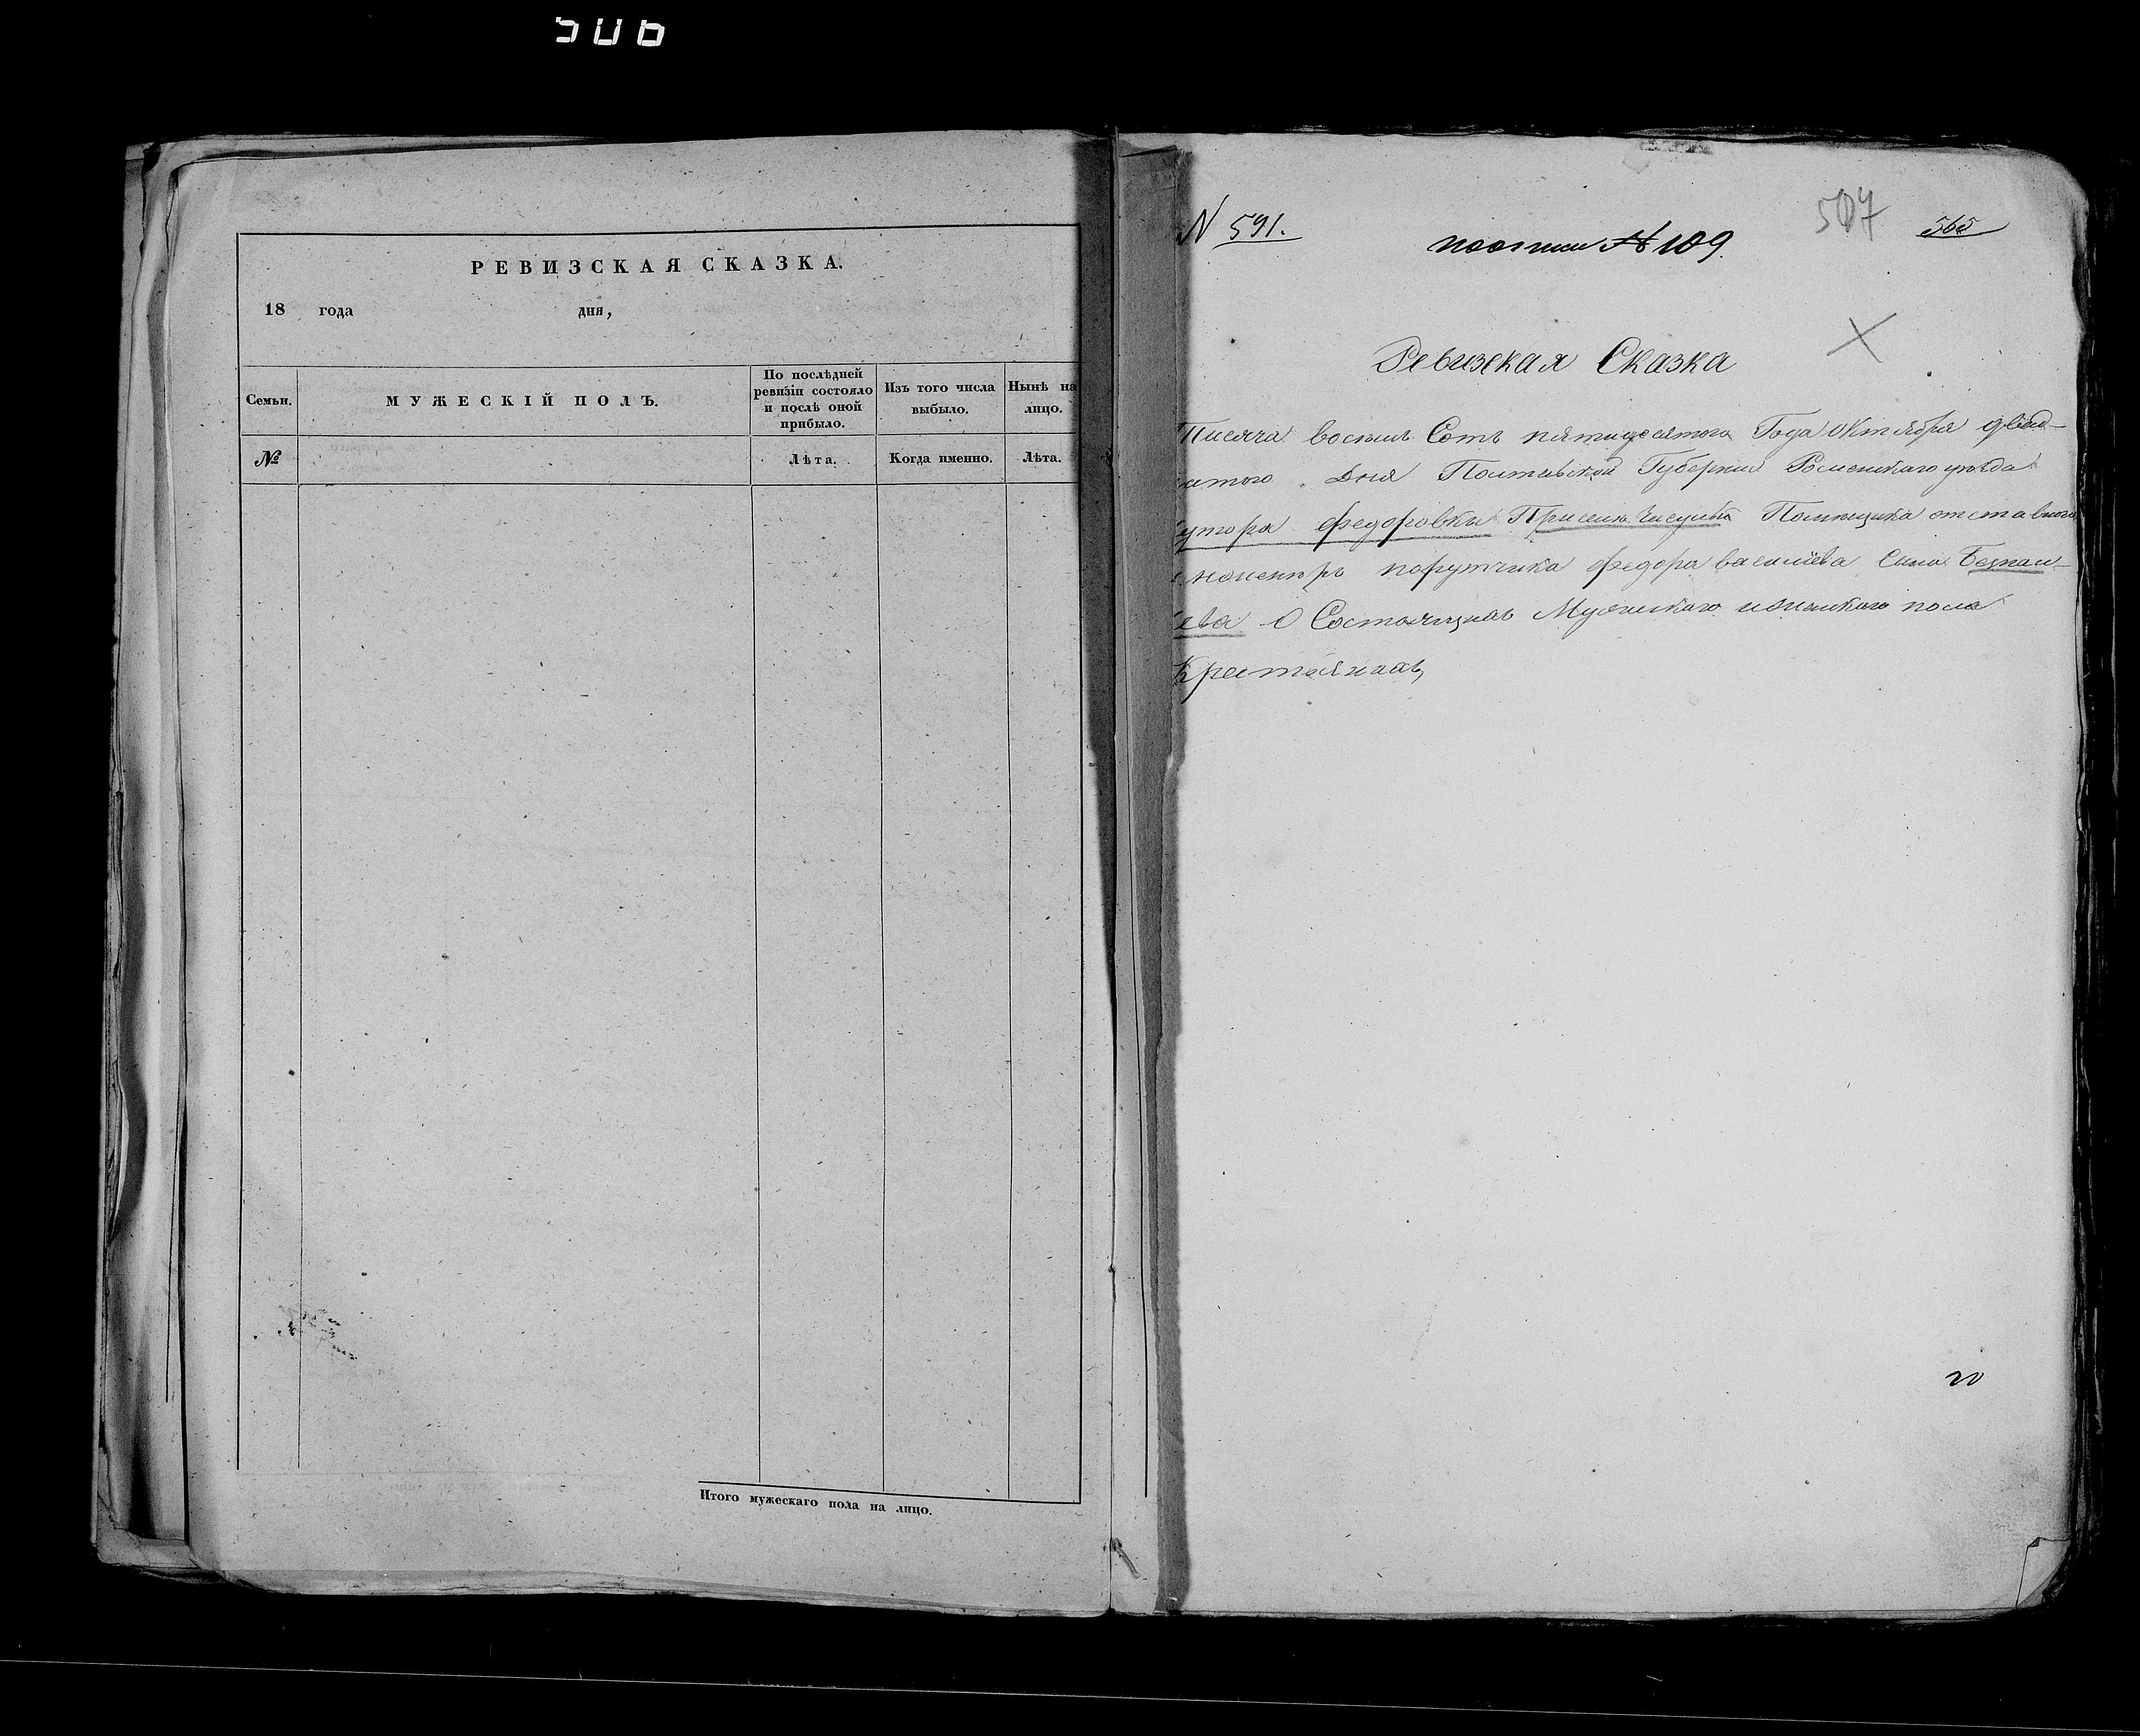 506
РЕВИЗСКАЯ СКАЗКА.
18 года дня,
Семьи.
МУЖЕСКІЙ ПОЛЪ.
По послѣдней ревизіи состояло и послѣ оной прибыло.
Изъ того числа выбыло.
Нынѣ на лицо.
№
Лѣта.
Когда именно.
Лѣта.
Итого мужескаго пола на лицо.
N 591.
507
565
№ 109.
Ревизская Сказка
Тисяча восемь Сотъ пятидесятого Года Октября двад-
цятого Дня Полтавской Губернии Роменскаго уѣзда
хутора Федоровки Помѣщика отставного
порутчика Федора василиева Сина Безпал-
ева О Состоящихъ Мужескаго иженскаго пола
Крестьянахъ,
20